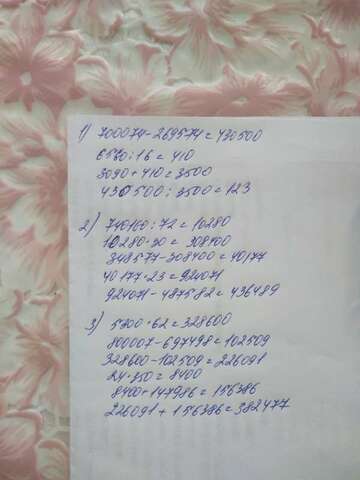 1) 700074-269574=430500
6560:16=410
3090+410=3500
430500:3500=123
2) 740160:72=10280
10280·30=308400
348577-308400=40177
40177·23=924071
924071-487582=436489
3) 5300·62=328600
800007-697498=102509
328600-102509=226091
24·350=8400
8400+147986=156386
226091+156386=382477